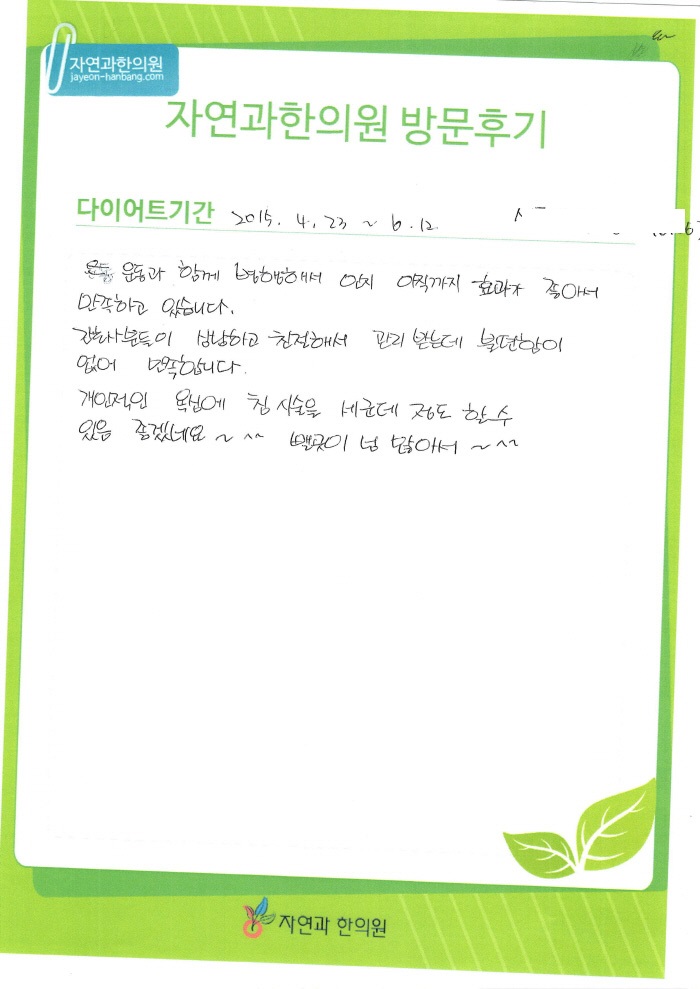 자연과한의원
jayeon-hanbang.com
자연과한의원 방문후기
다이어트기간 2015. 4. 23 ~ 6. 12.
운동과 함께 병행해서 인지 아직까지 효과가 좋아서
만족하고 있습니다.
간호사분들이 상냥하고 친절해서 관리 받는데 불편함이
없어 만족합니다.
개인적인 욕심에 침 시술을 세군데 정도 할 수
있음 좋겠네요 ~ ^^ 뺄곳이 넘 많아서 ~ ^^
자연과 한의원